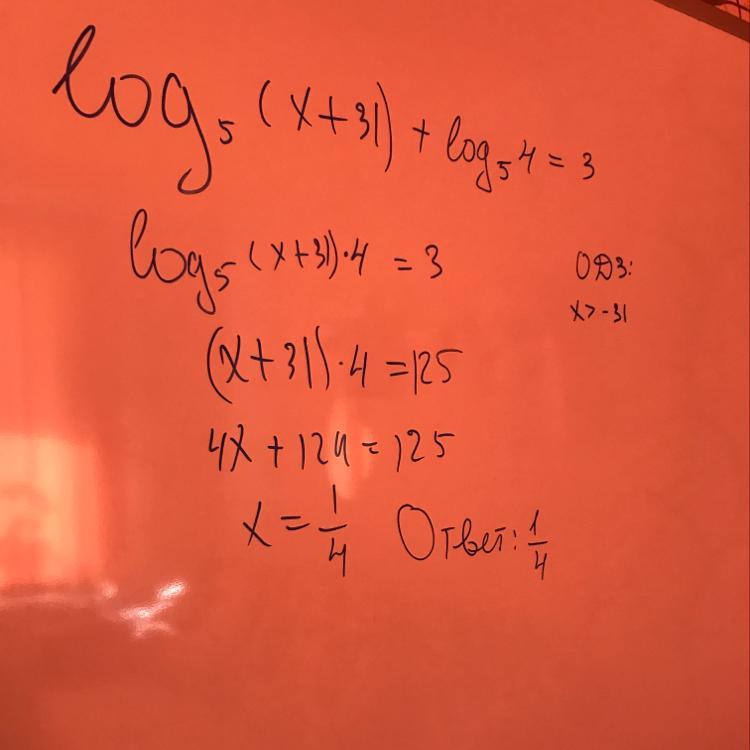 log₅(x+31) + log₅4 = 3
log₅(x+31)·4 = 3
ОДЗ:
x > -31
(x+31)·4 = 125
4x + 124 = 125
x = 1/4 Ответ: 1/4